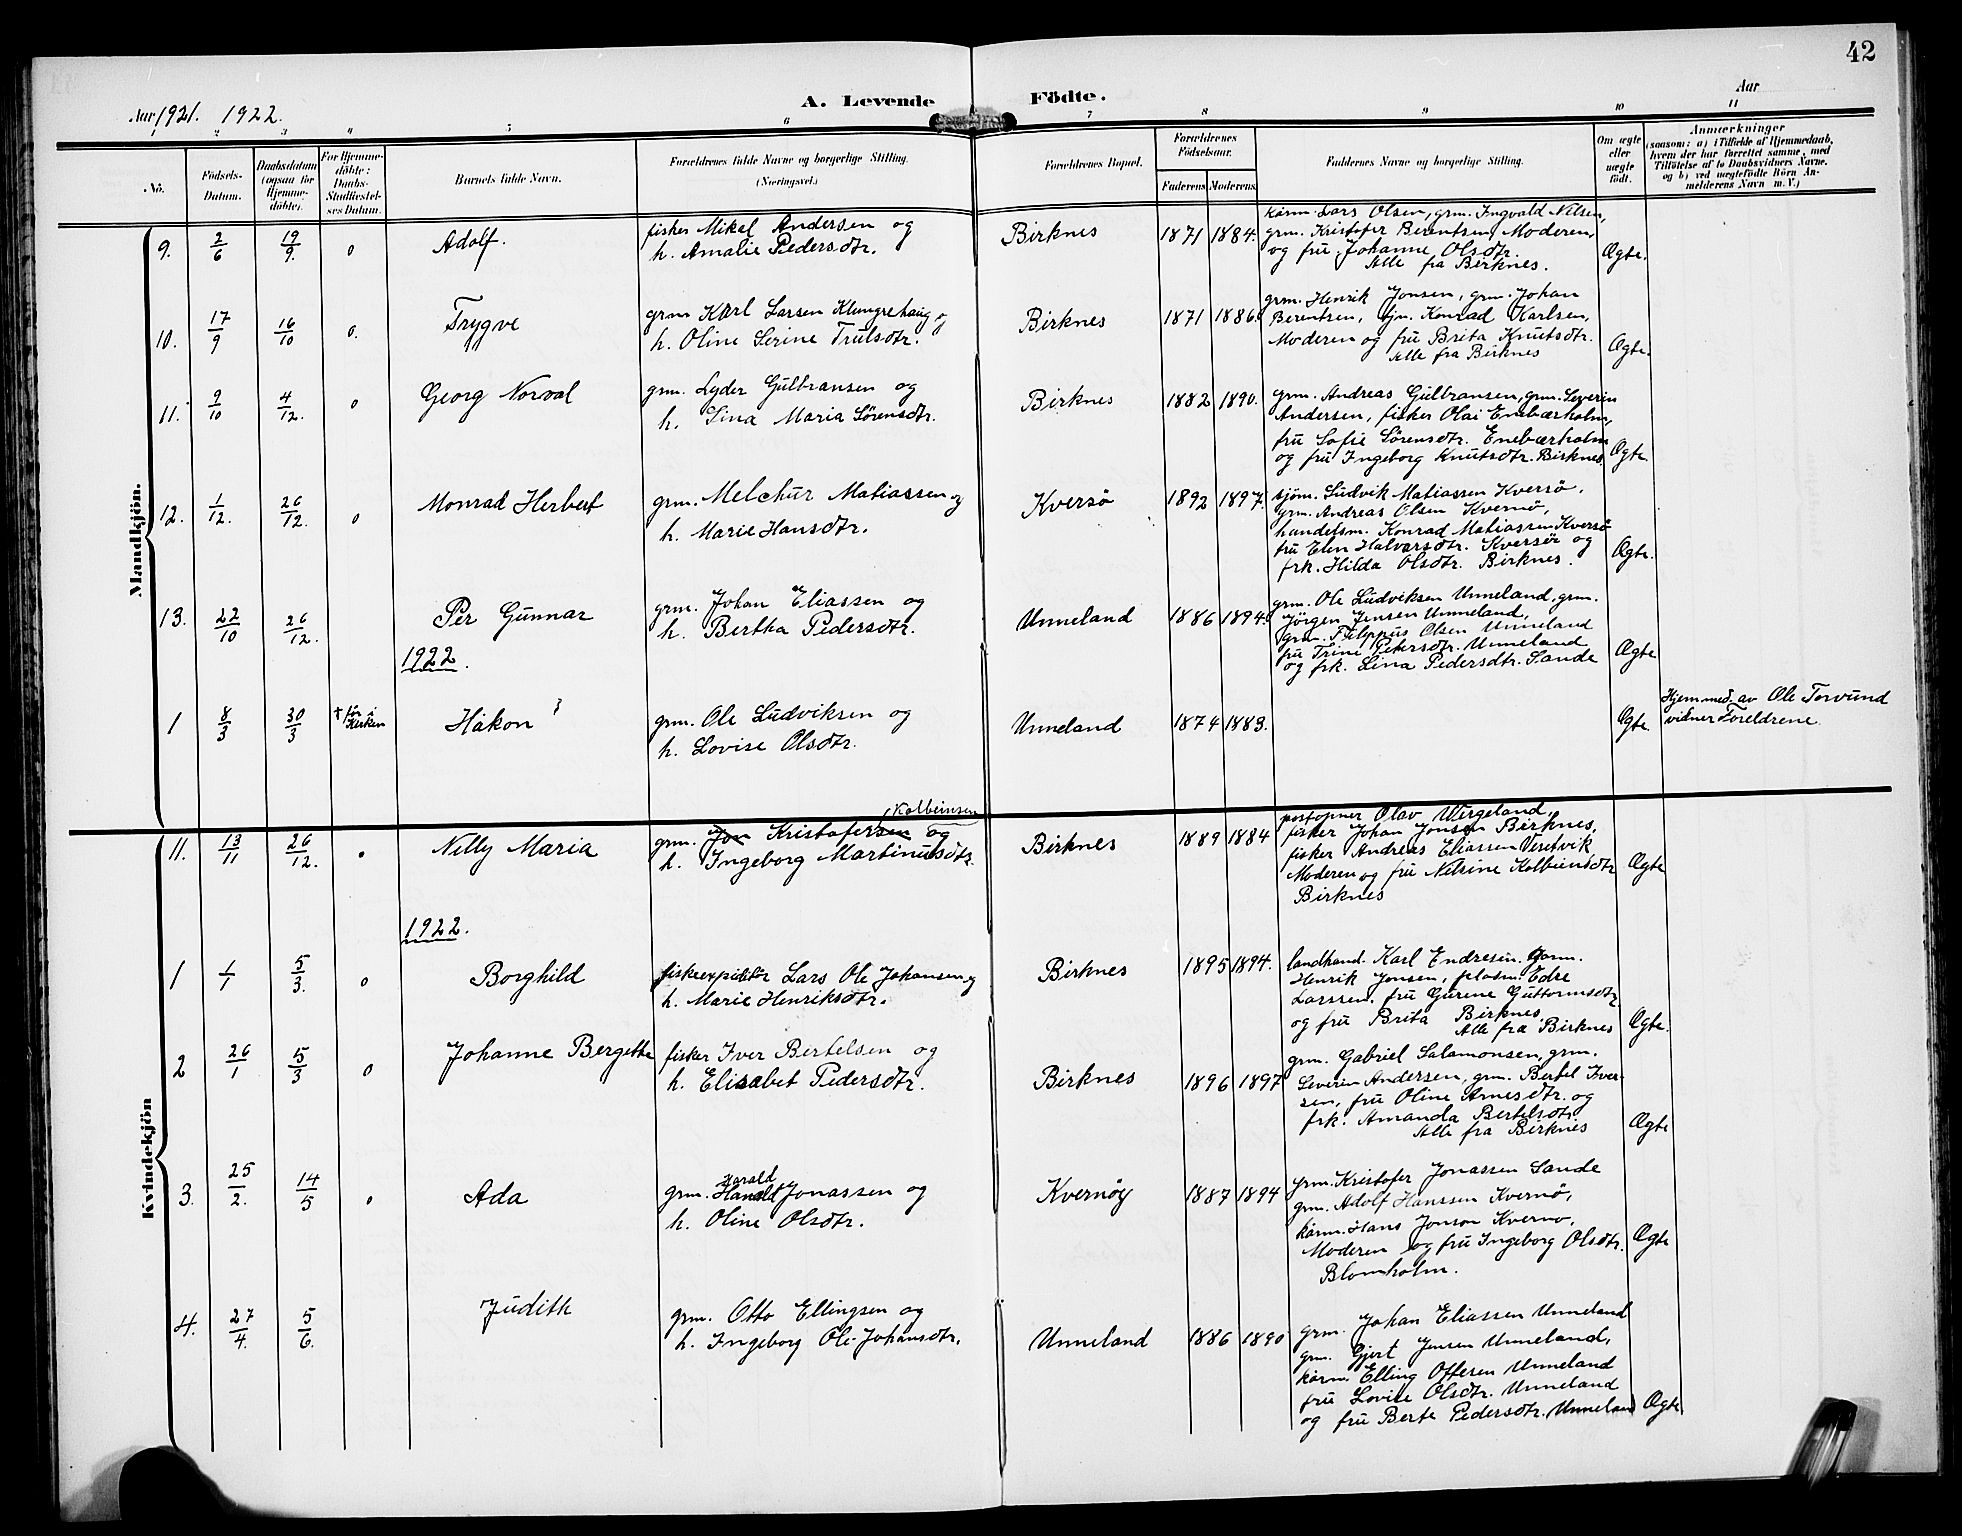 42
Aar 1921. 1922.
A. Levende Födte.
Aar
1 2 3 4 5 6 7 8 9 10 11
No.
Födsels-Datum.
Daabsdatum (ogsaa for Hjemmedöbte).
For Hjemmedöbte: Daabs-Stadfæstelses Datum.
Barnets fulde Navn.
Forældrenes fulde Navne og borgerlige Stilling.
(Næringsvei.)
Forældrenes Bopæl.
Forældrenes Födselsaar.
Faderens. Moderens.
Faddernes Navne og borgerlige Stilling.
Om ægte eller uægte födt.
Anmærkninger
(saasom: a) i Tilfælde af Hjemmedaab,
hvem der har forrettet samme, med
Tilföielse af to Daabsvidners Navne.
og b) ved uægtefödte Börn An-
melderens Navn m. V.)
Mandkjön.
9. 2/6 19/9. o Adolf. fisker Mikel Andersen og
h. Amalie Pedersdtr.
Birknes 1871 1884.
kårm. Lars Olsen, grm. Ingvald Nilsen,
grm. Kristofer Berentsen, Moderen,
og fru Johanne Olsdtr.
Alle fra Birknes.
Ægte.
10. 17/9 16/10 o. Trygve
grm Karl Larsen Klungrehaug og
h. Oline Serine Trulsdtr.
Birknes 1871 1886.
grm. Henrik Jonsen, grm. Johan
Berentsen, tjm. Konrad Karlsen,
Moderen og fru Brita Knutsdtr.
Alle fra Birknes
Ægte.
11. 9/10 4/12. o Georg Norval
grm. Lyder Gulbransen og
h. Lina Maria Sörensdtr.
Birknes 1882 1890.
grm. Andreas Gulbransen, grm. Severin
Andersen, fisker Olai Enebærholm,
fru Sofie Sörensdtr. Enebærholm
og fru Ingeborg Knutsdtr. Birknes.
Ægte.
12. 1/12. 26/12. o Monrad Herbert
grm. Melchur Matiassen og
h. Marie Hansdtr.
Kversö 1892 1897.
sjöm. Ludvik Matiassen Kversö,
grm. Andreas Olsen Kvernö,
handelsm. Konrad Matiassen Kversö
fru Elen Halvarsdtr. Kversör og
frk. Hilda Olsdtr. Birknes.
Ægte.
13. 22/10 26/12. Per Gunnar
grm. Johan Eliassen og
h. Bertha Pedersdtr.
Unneland 1886 1894.
grm. Ole Ludviksen Unneland, grm.
Jörgen Jensen Unneland,
grm. Filippus Olsen Unneland
fru Trine Petersdtr. Unneland
og frk. Lina Pedersdtr. Sande
Ægte
1922.
1 8/3 30/3 † för i Kirken Håkon
grm. Ole Ludviksen og
h. Lovise Olsdtr.
Unneland 1874 1883.
Ægte.
Hjemmed. av Ole Torvund
vidner Foreldrene.
Kvindekjön
11. 13/11 26/12. Nelly Maria
Kolbeinsen
grm. Jon Kristofersen og
h. Ingeborg Martinusdtr.
Birknes 1889 1884
postopner Olav Wergeland,
fisker Johan Jonsen Birknes,
fisker Andreas Eliassen Vesetvik
Moderen og fru Nilsine Kolbeinsdtr
Birknes
Ægte
1922.
1 1/1 5/3. o Borghild
fiskeexpiditr Lars Ole Johansen og
h. Marie Henriksdtr.
Birknes 1895 1894.
landhand. Karl Endresen. Garm.
Henrik Jonsen, Edre
Larssen, fru Gurine Guttormsdtr.
og fru Brita Birknes
Alle fra Birknes
Ægte.
2 26/1 5/3 o Johanne Bergette
fisker Iver Bertelsen og
h. Elisabet Pedersdtr.
Birknes 1896 1897
grm. Gabriel Salamonsen, grm.
Severin Andersen, grm. Bertel Iver-
sen, fru Oline Arnesdtr. og
frk. Amanda Bertelsdtr.
Alle fra Birknes
Ægte
3. 25/2. 14/5 o Ada
Harald
grm. Jonassen og
h. Oline Olsdtr.
Kvernöy 1887 1894
grm. Kristofer Jonassen Sande
grm. Adolf Hanssen Kvernö,
kårm. Hans Jonson Kvernö,
Moderen og fru Ingeborg Olsdtr.
Blomholm.
Ægte
4. 27/4. 5/6. Judith
grm. Otto Ellingsen og
h. Ingeborg Ole-Johansdtr.
Unneland 1886 1890
grm. Johan Eliassen Unneland
grm. Gjert Jensen Unneland,
kårm. Elling Ottesen Unneland
fru Lovise Olsdtr. Unneland
og fru Berte Pedersdtr. Unneland
Ægte